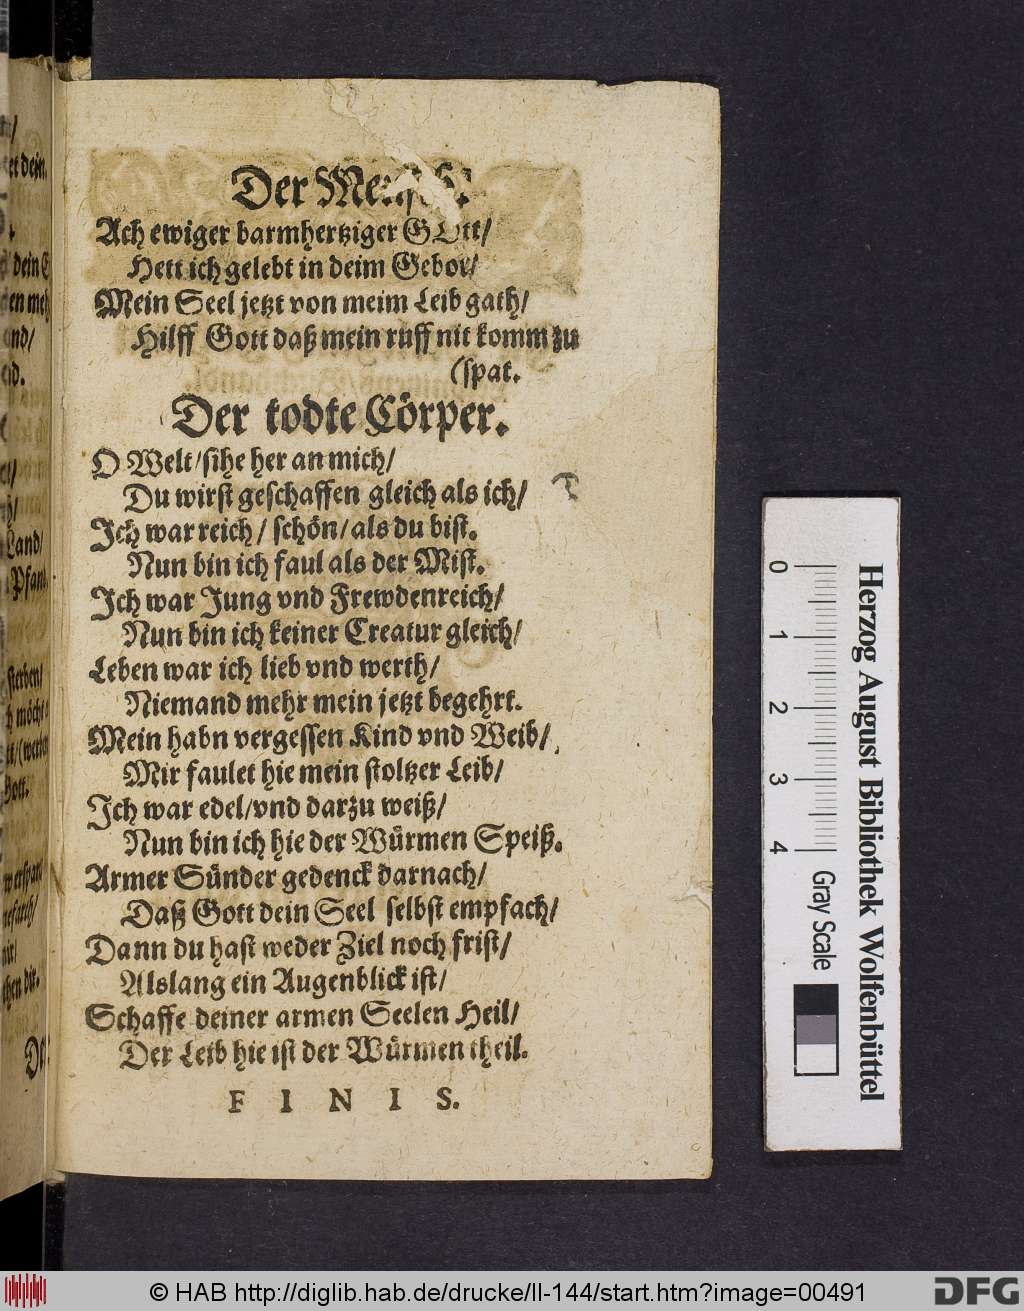 Der Mensch.
Ach ewiger barmhertziger GOtt/
Hett ich gelebt in deim Gebot/
Mein Seel jetzt von meim Leib gath/
Hilff Gott daß mein ruff nit komm zu
(spat.
Der todte Cörper.
O Welt/sihe her an mich/
Du wirst geschaffen gleich als ich/
Ich war reich/ schön/als du bist.
Nun bin ich faul als der Mist.
Ich war Jung vnd Frewdenreich/
Nun bin ich keiner Creatur gleich/
Leben war ich lieb vnd werth/
Niemand mehr mein jetzt begehrt.
Mein habn vergessen Kind vnd Weib/
Mir faulet hie mein stoltzer Leib/
Ich war edel/vnd darzu weiß/
Nun bin ich hie der Würmen Speiß.
Armer Sünder gedenck darnach/
Daß Gott dein Seel selbst empfach/
Dann du hast weder Ziel noch frist/
Alslang ein Augenblick ist/
Schaffe deiner armen Seelen Heil/
Der Leib hie ist der Würmen theil.
FINIS.
0 1 2 3 4 Gray Scale
Herzog August Bibliothek Wolfenbüttel
© HAB http://diglib.hab.de/drucke/ll-144/start.htm?image=00491
DFG